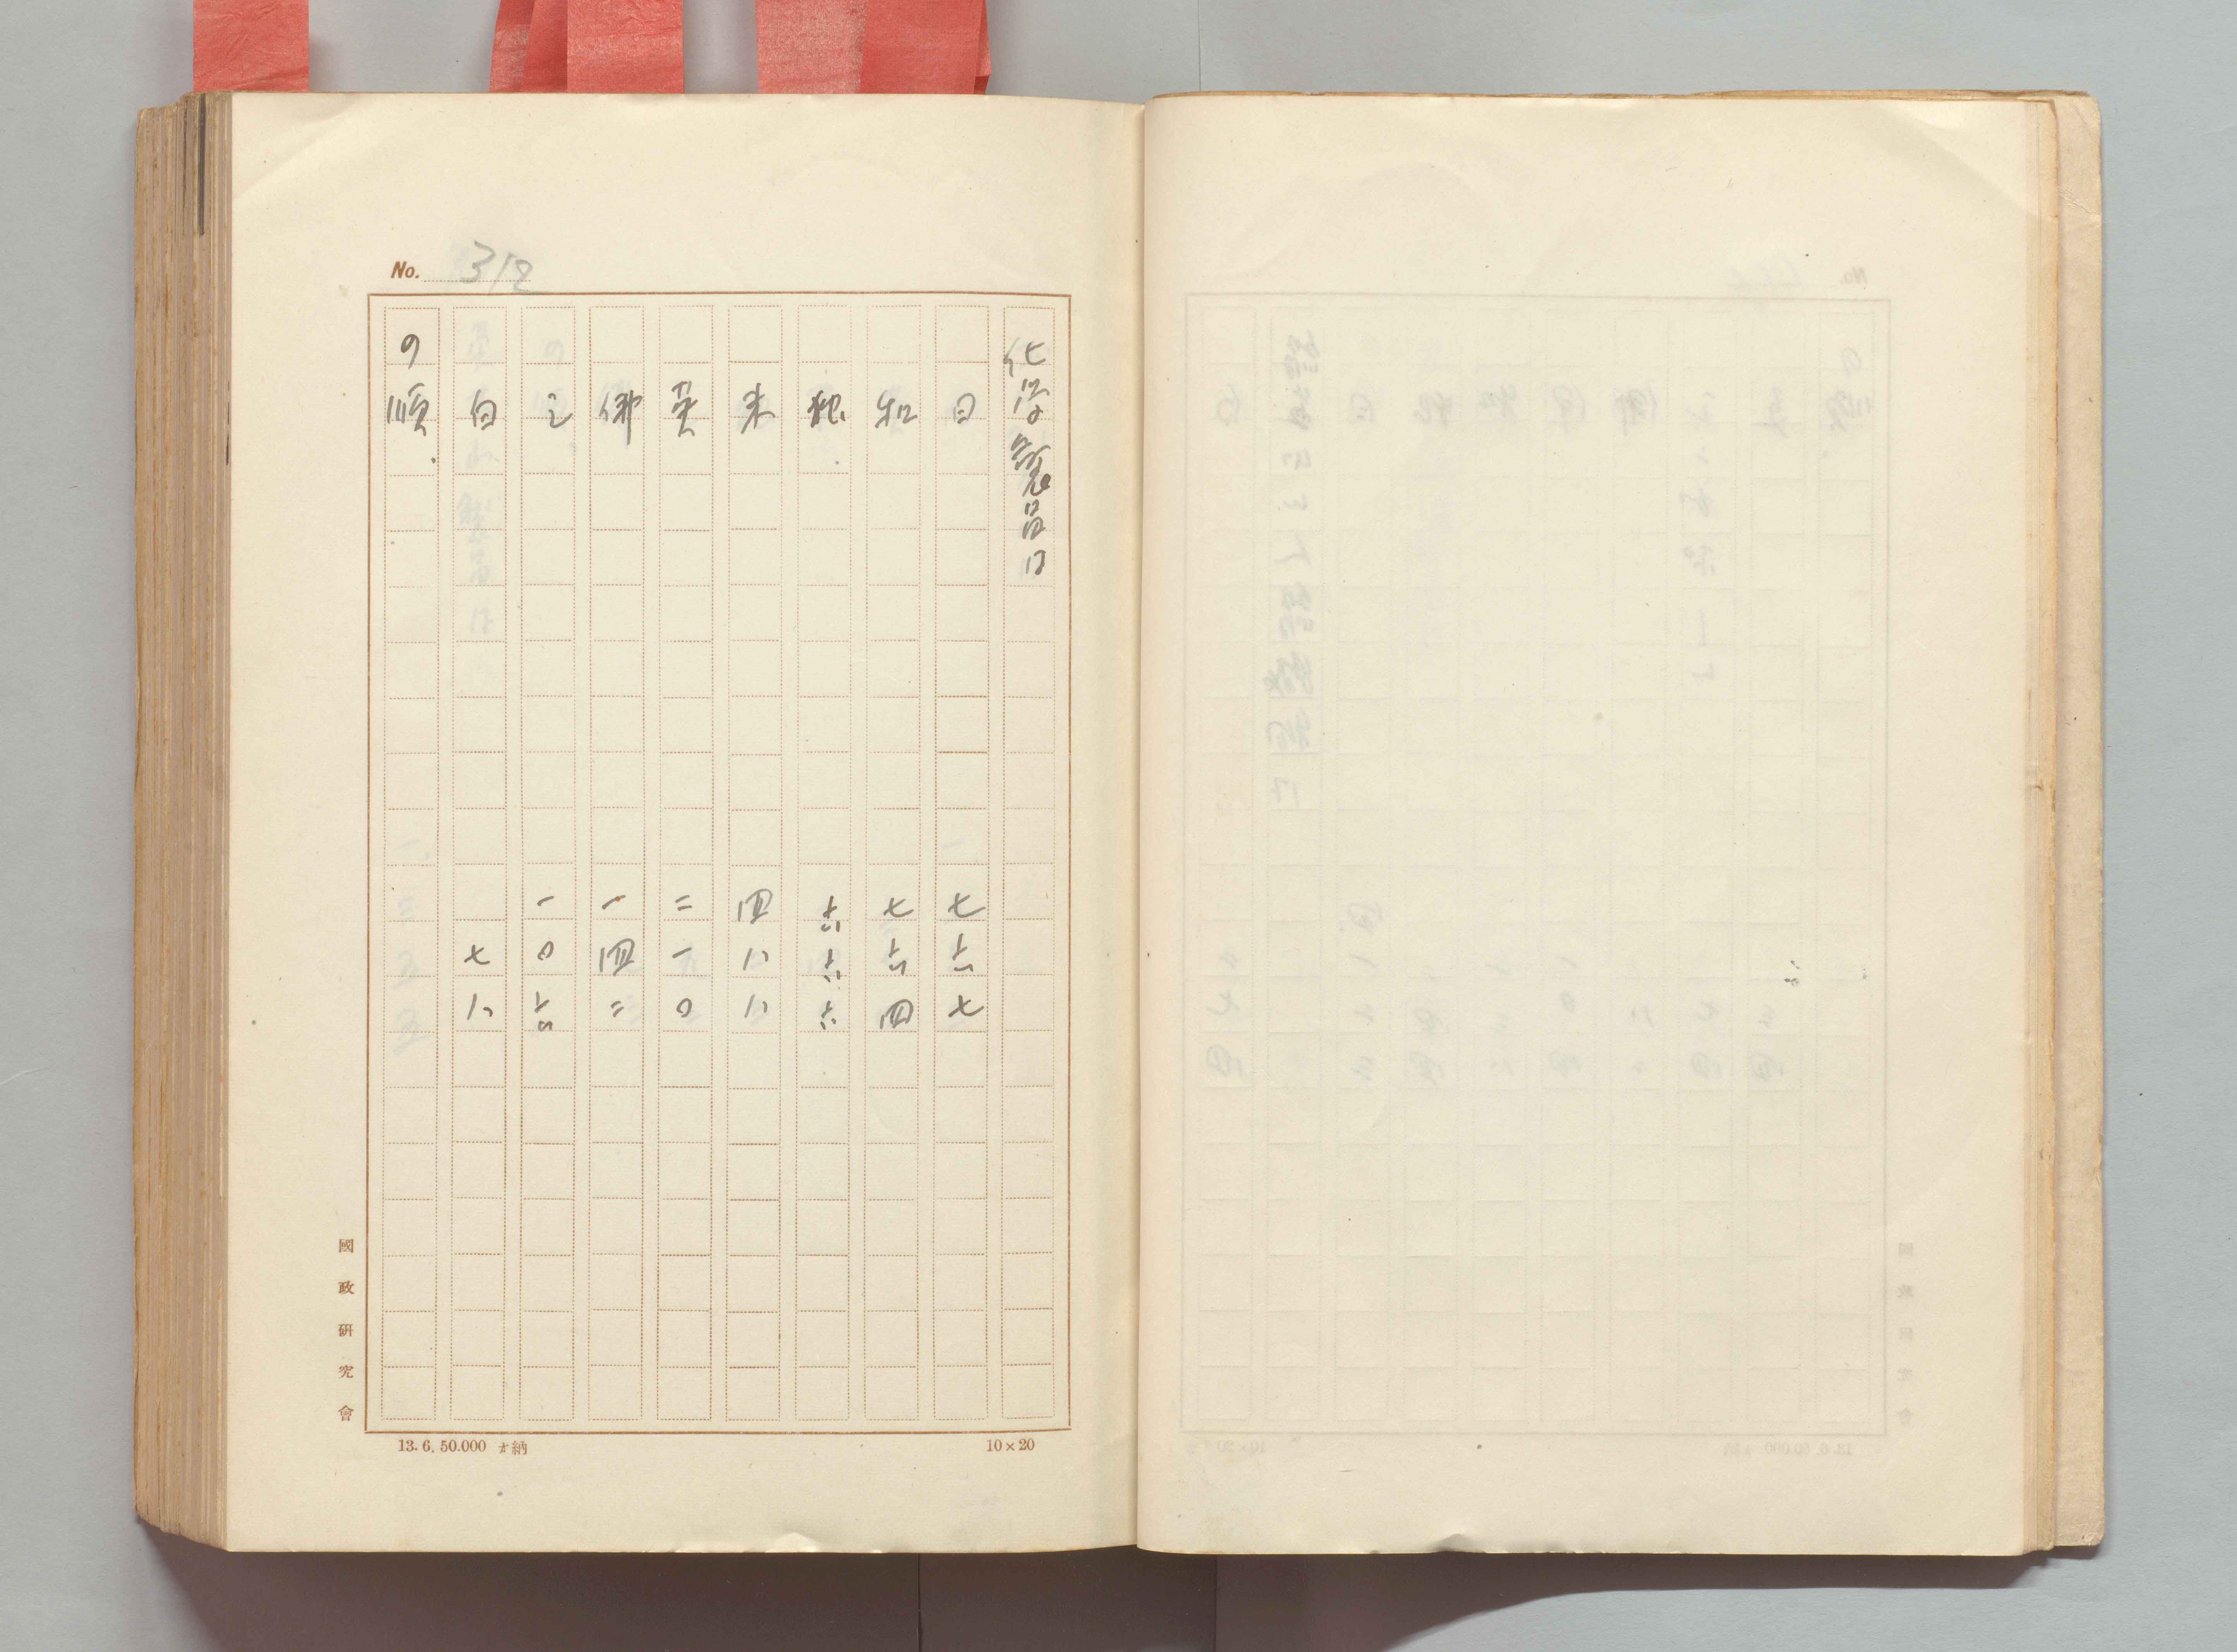 No. 312
化学製品は
日 七六七
和 七六四
独 六六六
米 四八八
英 二一〇
佛 一四二
一〇六
白 七八
の順.
國政研究會
13.6.50.000 納
10×20